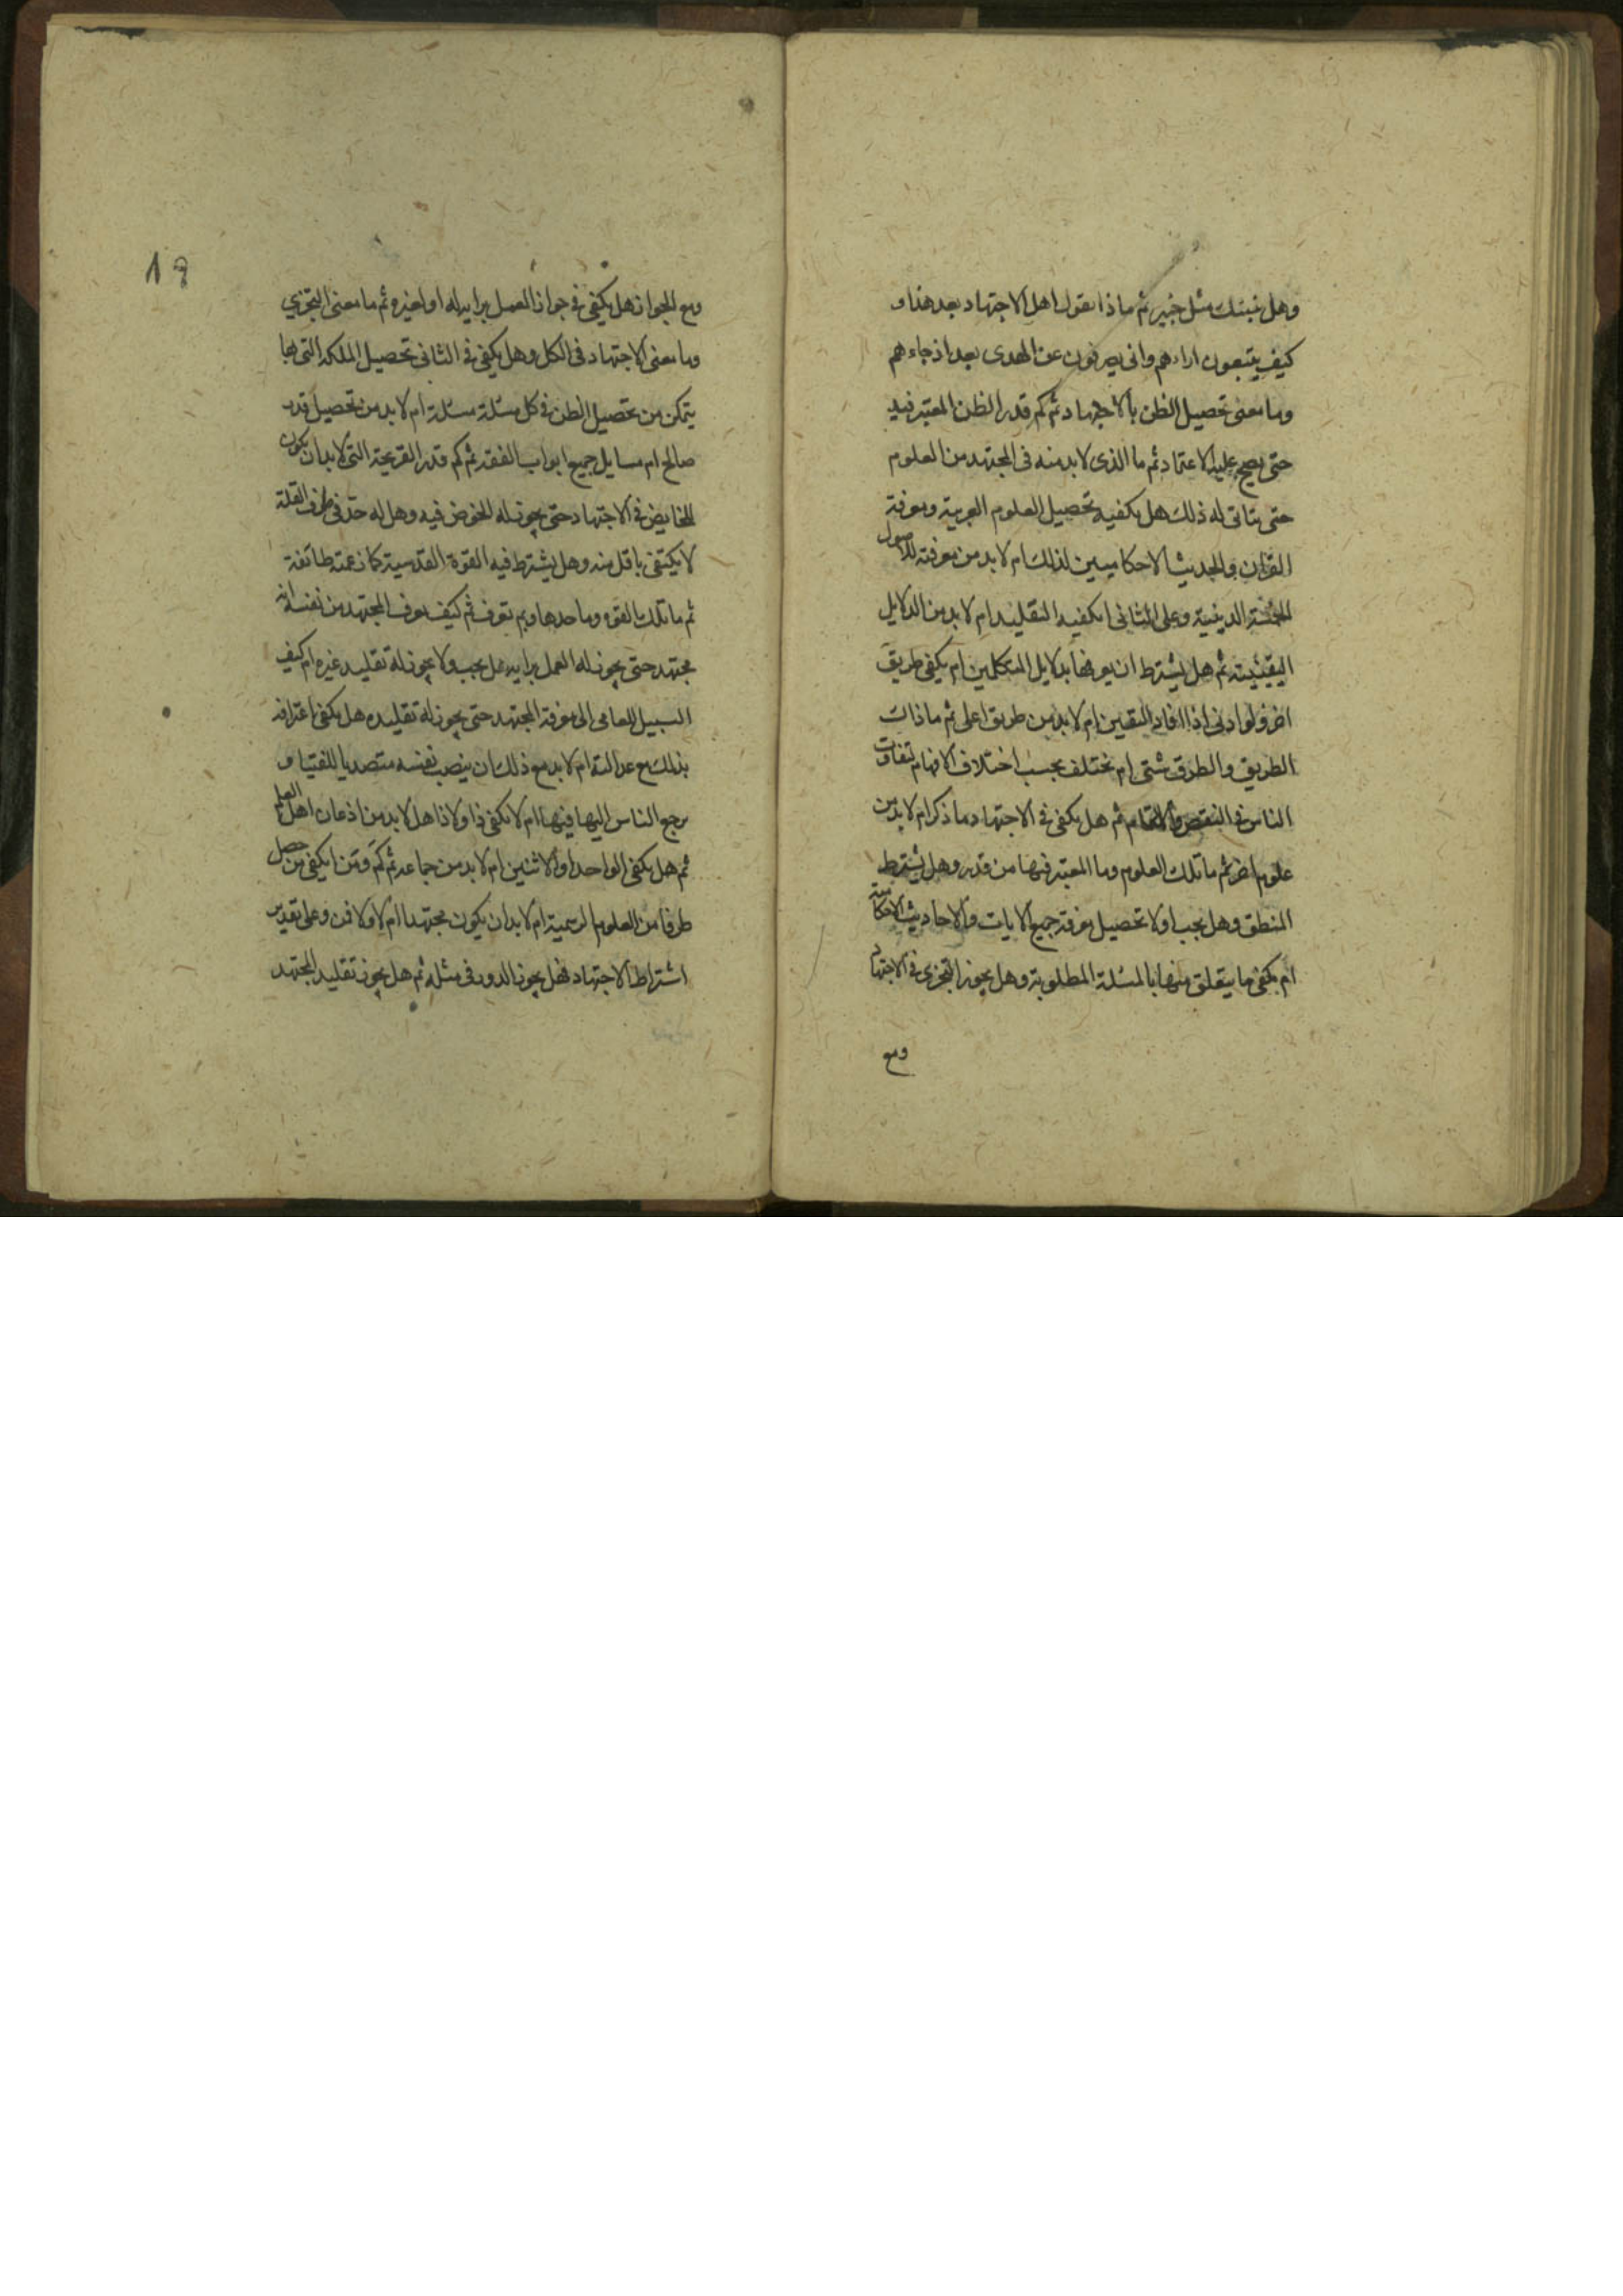 وهل ينبئك مثل خبير ثم ماذا يقول اهل الاجتهاد بعد هذا و
كيف يتبعون اراءهم وانى يصرفون عن الهدى بعد اذ جاءهم
وما معنى تحصيل الظن بالاجتهاد ثم كم قدر الظن المعتبر فيه
حتى يصح عليه الاعتماد ثم ما الذى لابد منه فى المجتهد من العلوم
حتى يتاتى له ذلك هل يكفيه تحصيل العلوم العربية ومعرفة
القرآن والحديث الاحكاميين لذلك ام لابد من معرفته للاصول
الخمسة الدينية وعلى الثانى ايكفيه التقليد ام لابد من الدلايل
اليقينية ثم هل يشترط ان يعرفها بدلايل المتكلمين ام يكفى طريق
اخر ولو ادنى اذا افاد اليقين ام لابد من طريق اعلى ثم ما ذاك
الطريق والطرق شتى ام تختلف بحسب اختلاف الافهام لتفاوت
الناس فى النقص والتمام ثم هل يكفى فى الاجتهاد ما ذكر ام لابد من
علوم اخر ثم ما تلك العلوم وما المعتبر فيها من قدر وهل يشترط
المنطق وهل يجب اولا تحصيل معرفة جميع الايات والاحاديث الاحكامية
ام يكفى ما يتعلق منها بالمسئلة المطلوبة وهل يجوز التجزى فى الاجتهاد
ومع
18
ومع الجواز هل يكفى فى جواز العمل برايه له او لغيره ثم ما معنى التجزي
وما معنى الاجتهاد فى الكل وهل يكفى فى الثانى تحصيل الملكة التى بها
يتمكن من تحصيل الظن فى كل مسئلة مسئلة ام لابد من تحصيل قدر
صالح ام مسايل جميع ابواب الفقه ثم كم قدر القريحة التى لابد ان يكون
للخايض فى الاجتهاد حتى يجوز له الخوض فيه وهل له حد فى طرف القلة
لا يكتفى باقل منه وهل يشترط فيه القوة القدسية كما زعمته طائفة
ثم ما تلك القوه وما حدها وبم تعرف ثم كيف يعرف المجتهد من نفسه انه
مجتهد حتى يجوز له العمل برايه بل يجب ولا يجوز له تقليد غيره ام كيف
السبيل للعامى الى معرفة المجتهد حتى يجوز له تقليده هل يكفى اعترافه
بذلك مع عدالته ام لابد مع ذلك ان ينصب نفسه متصديا للفتيا و
يرجع الناس اليها فيها ام لا يكفى ذا ولا ذا هل لابد من اذعان اهل العلم
ثم هل يكفى الواحد او الاثنين ام لابد من جماعة ثم كم ومن ايكفى من حصل
طرفا من العلوم الرسمية ام لابد ان يكون مجتهدا ام لا ولا فمن وعلى تقدير
اشتراط الاجتهاد فهل يجوز الدور فى مثله ثم هل يجوز تقليد المجتهد